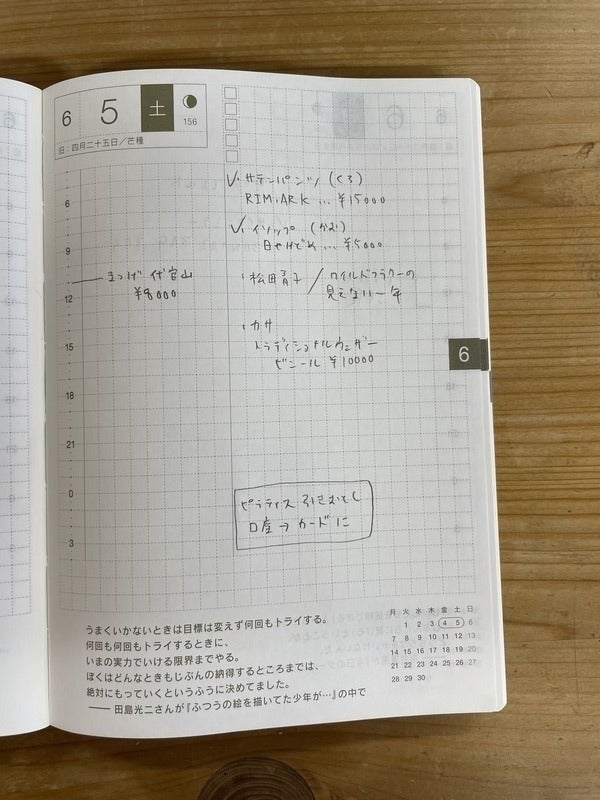 6 5 土
156
旧:四月二十五日/芒種
6
9
12
15
18
21
0
3
まつげ 代官山
¥8000
✓・サテンパンツ (くろ)
RIM.ARK … ¥15000
✓・イソップ (かお)
日やけどめ … ¥5000
・松田青子 / ワイルドフラワーの
見えない一年
・カサ
トラディショナルウェザー
ビニール ¥10000
ピラティス 引きおとし
口座→カードに
6
うまくいかないときは目標は変えず何回もトライする。
何回も何回もトライするときに、
いまの実力でいける限界までやる。
ぼくはどんなときもじぶんの納得するところまでは、
絶対にもっていくというふうに決めてました。
―― 田島光二さんが『ふつうの絵を描いてた少年が…』の中で
月 火 水 木 金 土 日
1 2 3 4 5 6
7 8 9 10 11 12 13
14 15 16 17 18 19 20
21 22 23 24 25 26 27
28 29 30